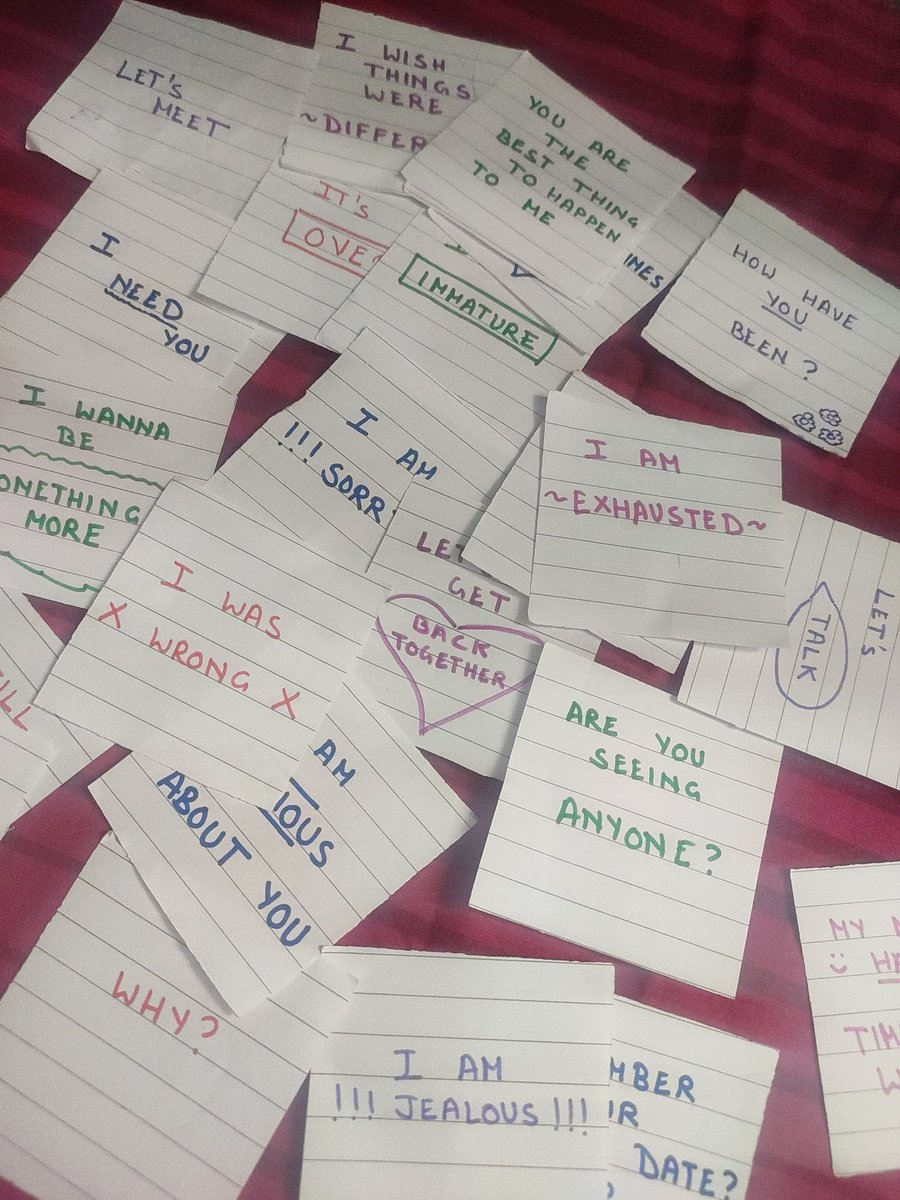 LET'S
MEET
I WISH
THINGS
WERE
~DIFFER
YOU ARE
THE
BEST THING
TO HAPPEN
TO ME
IT'S
OVE
IMMATURE
IMES
HOW HAVE
YOU
BEEN?
I
NEED
YOU
I WANNA
BE
OMETHING
MORE
I AM
!!! SORR
I AM
~EXHAUSTED~
LET
GET
BACK
TOGETHER
LET'S
TALK
I WAS
X WRONG X
ILL
AM
IOUS
ABOUT YOU
ARE YOU
SEEING
ANYONE?
WHY?
I AM
!!! JEALOUS !!!
MBER
R
DATE?
MY
HA
TIM
W